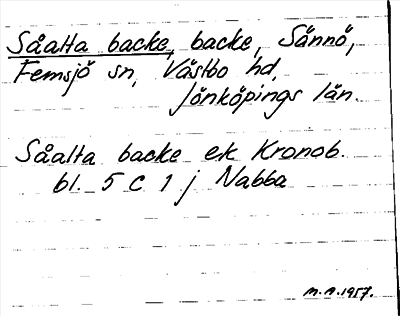 Såalta backe, backe, Sännö,
Femsjö sn, Västbo hd,
Jönköpings län.
Såalta backe ek Kronob.
bl. 5 C 1 j Nabba
M.A. 1957.